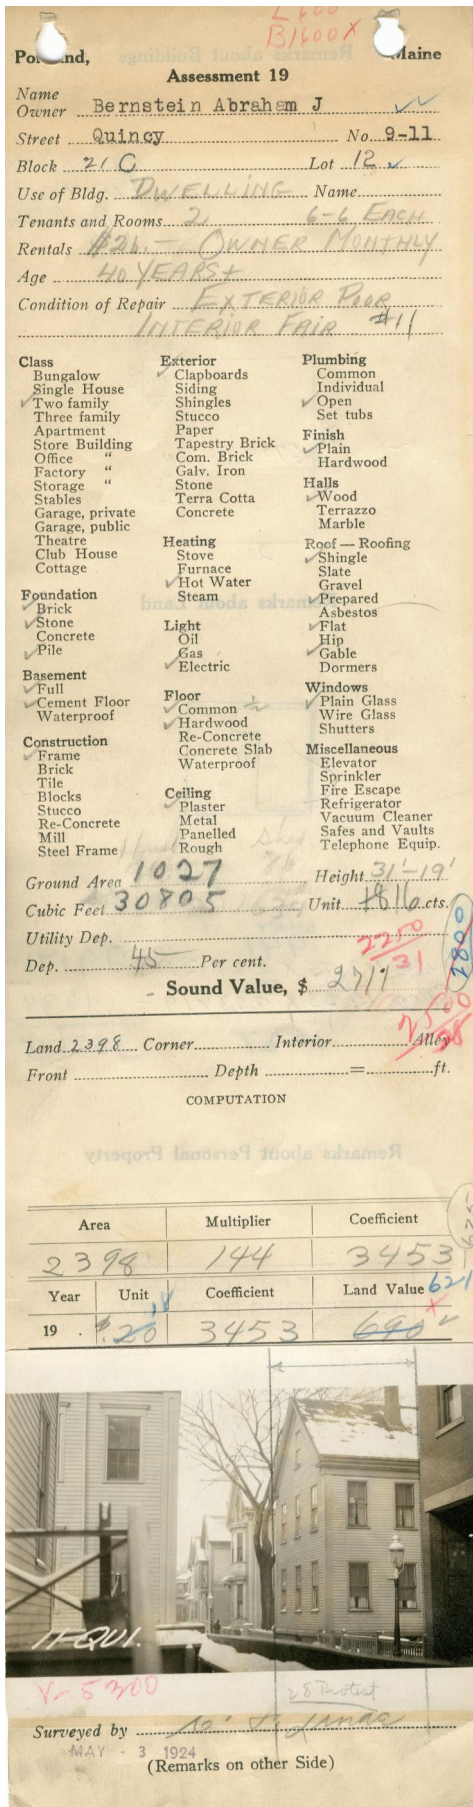 L 600
B1600X
Portland, Maine
Assessment 19
Name
Owner Bernstein Abraham J
Street Quincy No. 9-11
Block 21 C Lot 12
Use of Bldg. DWELLING Name
Tenants and Rooms 2 6-6 EACH
Rentals #26.- OWNER MONTHLY
Age 40 YEARS+
Condition of Repair EXTERIOR POOR
INTERIOR FAIR #11
Class
Bungalow
Single House
Two family
Three family
Apartment
Store Building
Office "
Factory "
Storage "
Stables
Garage, private
Garage, public
Theatre
Club House
Cottage
Foundation
Brick
Stone
Concrete
Pile
Basement
Full
Cement Floor
Waterproof
Construction
Frame
Brick
Tile
Blocks
Stucco
Re-Concrete
Mill
Steel Frame
Exterior
Clapboards
Siding
Shingles
Stucco
Paper
Tapestry Brick
Com. Brick
Galv. Iron
Stone
Terra Cotta
Concrete
Heating
Stove
Furnace
Hot Water
Steam
Light
Oil
Gas
Electric
Floor
Common ½
Hardwood
Re-Concrete
Concrete Slab
Waterproof
Ceiling
Plaster
Metal
Panelled
Rough
Plumbing
Common
Individual
Open
Set tubs
Finish
Plain
Hardwood
Halls
Wood
Terrazzo
Marble
Roof — Roofing
Shingle
Slate
Gravel
Prepared
Asbestos
Flat
Hip
Gable
Dormers
Windows
Plain Glass
Wire Glass
Shutters
Miscellaneous
Elevator
Sprinkler
Fire Escape
Refrigerator
Vacuum Cleaner
Safes and Vaults
Telephone Equip.
Ground Area 1027 Height 31'-19'
Cubic Feet 30805 Unit 16 cts.
Utility Dep. 2250
31
2800
Dep. 45 Per cent.
Sound Value, $ 2711
2500
28
Land 2398 Corner Interior Alley
Front Depth = ft.
COMPUTATION
Area Multiplier Coefficient
2398 144 3453
Year Unit Coefficient Land Value 621
19 $.20 .18 3453 690
11-QUI.
V-5200
28 Protest
Surveyed by
MAY - 3 1924
(Remarks on other Side)